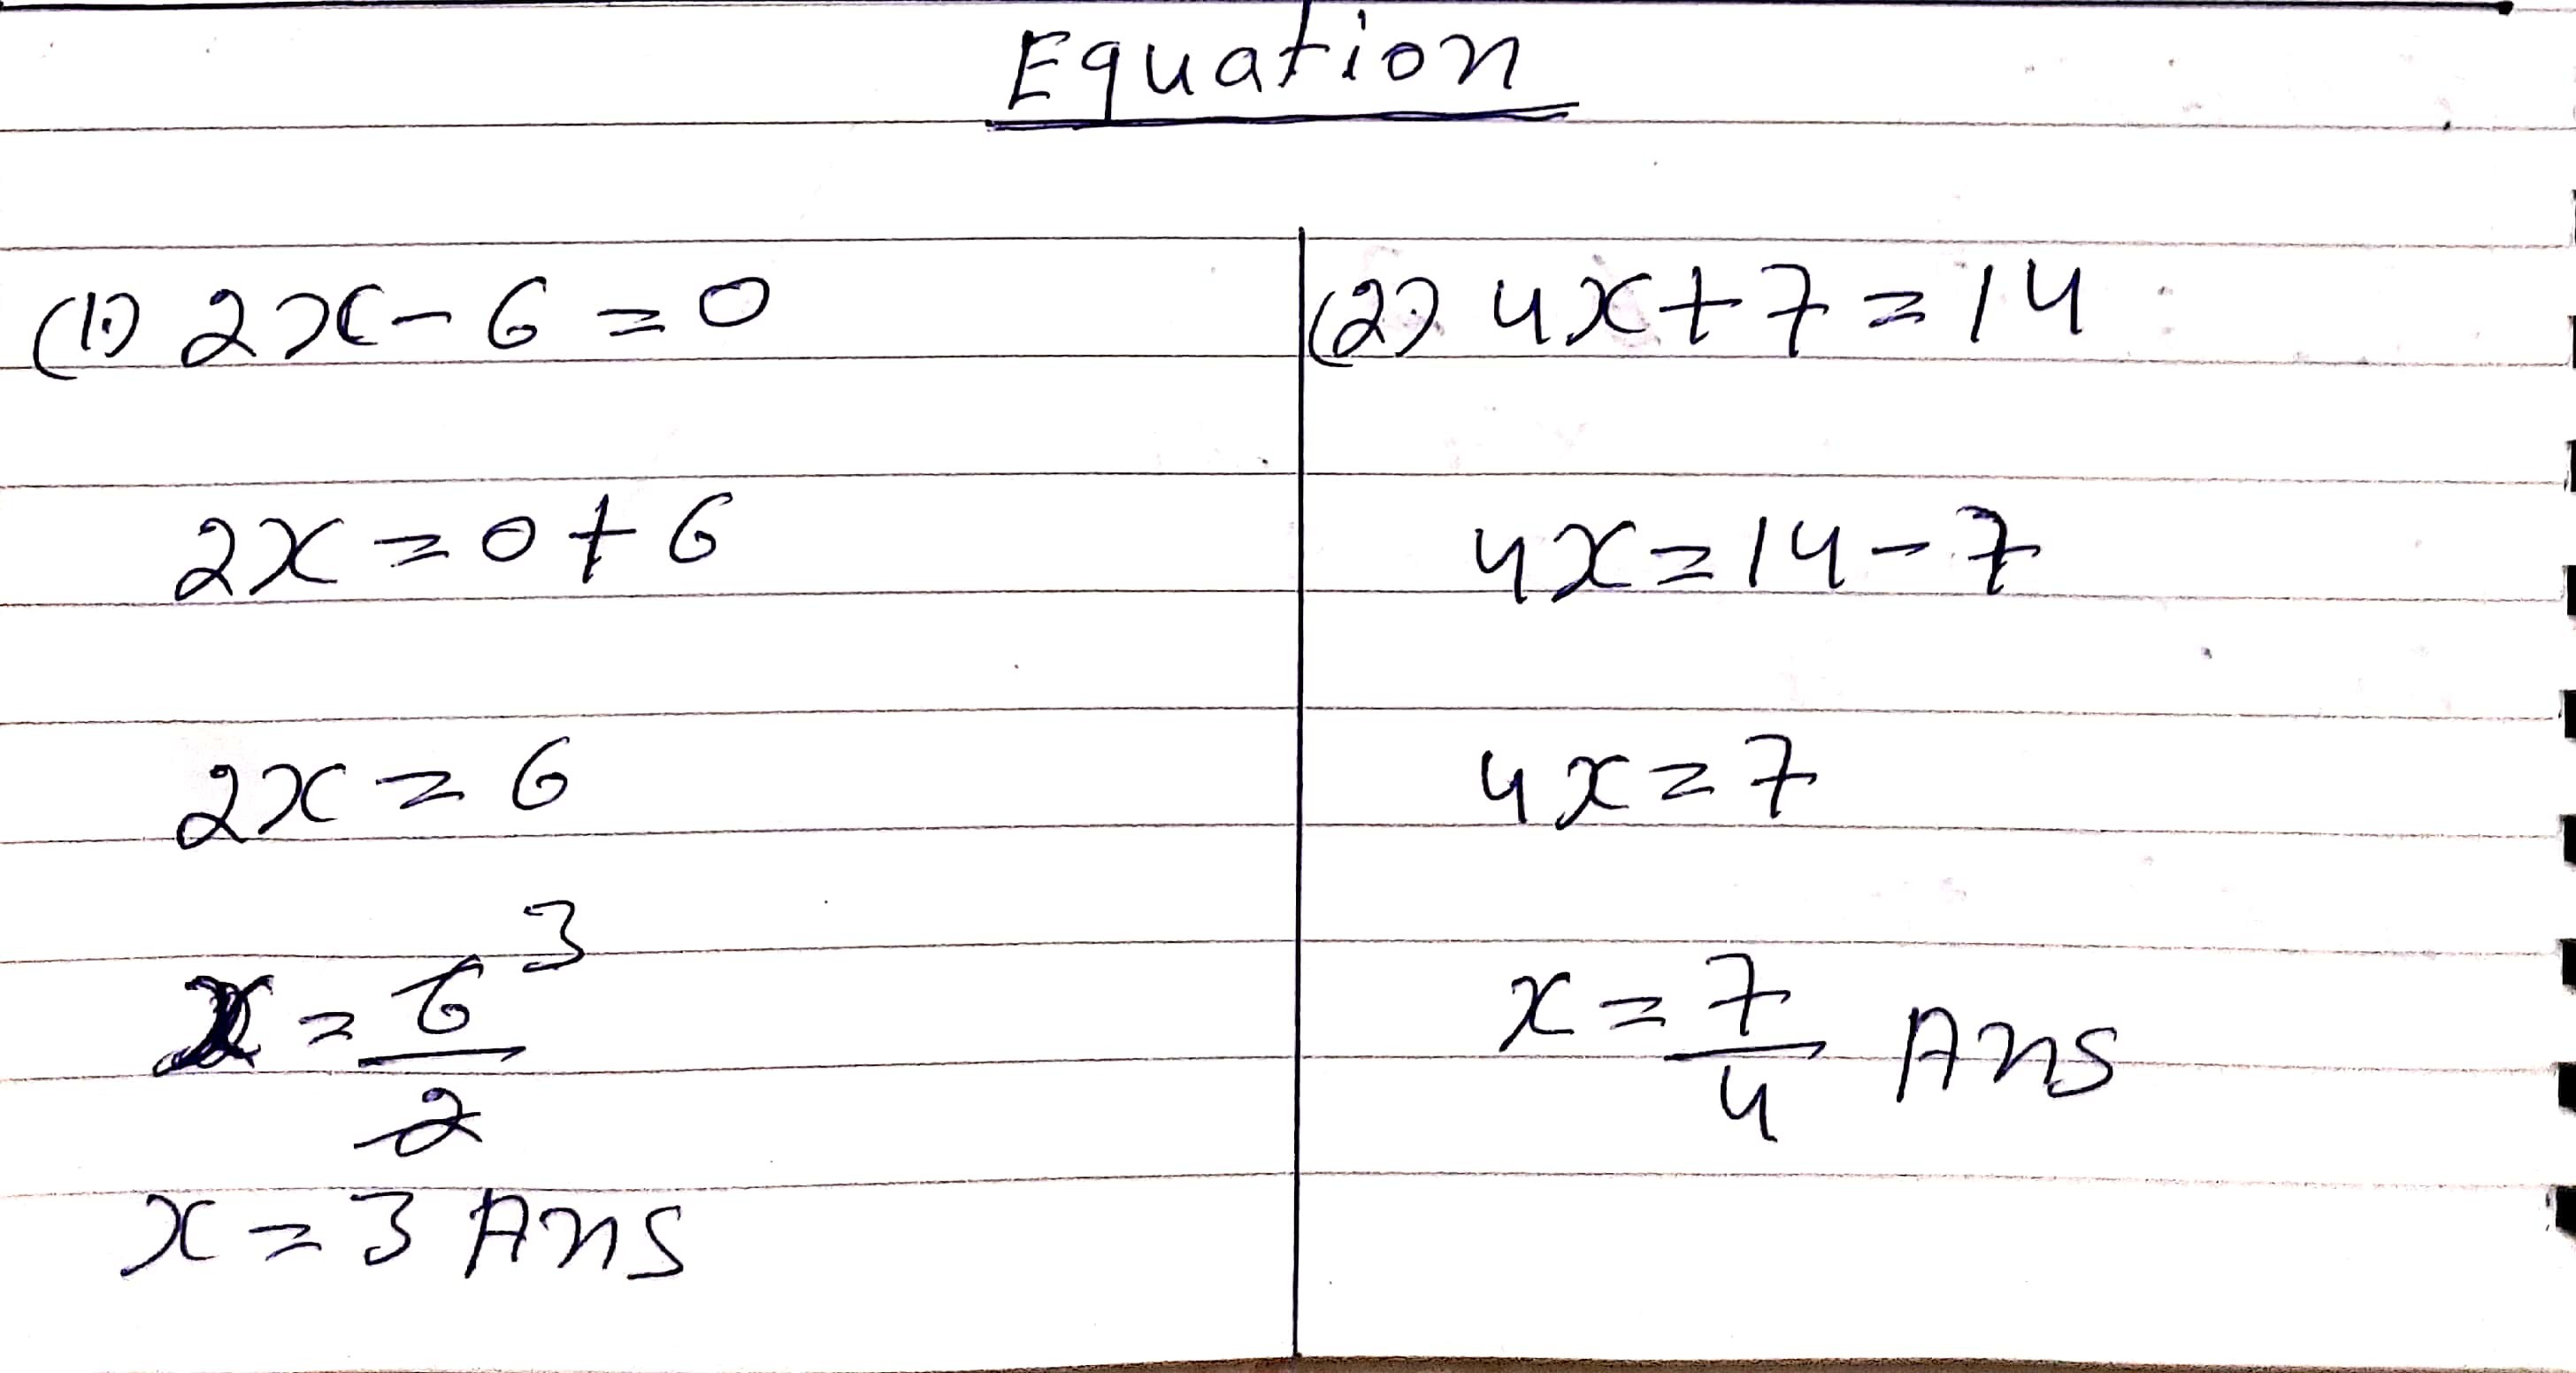 Equation
(1.) 2x - 6 = 0
2x = 0 + 6
2x = 6
x = 6/2 3
x = 3 Ans
(2.) 4x + 7 = 14
4x = 14 - 7
4x = 7
x = 7/4 Ans